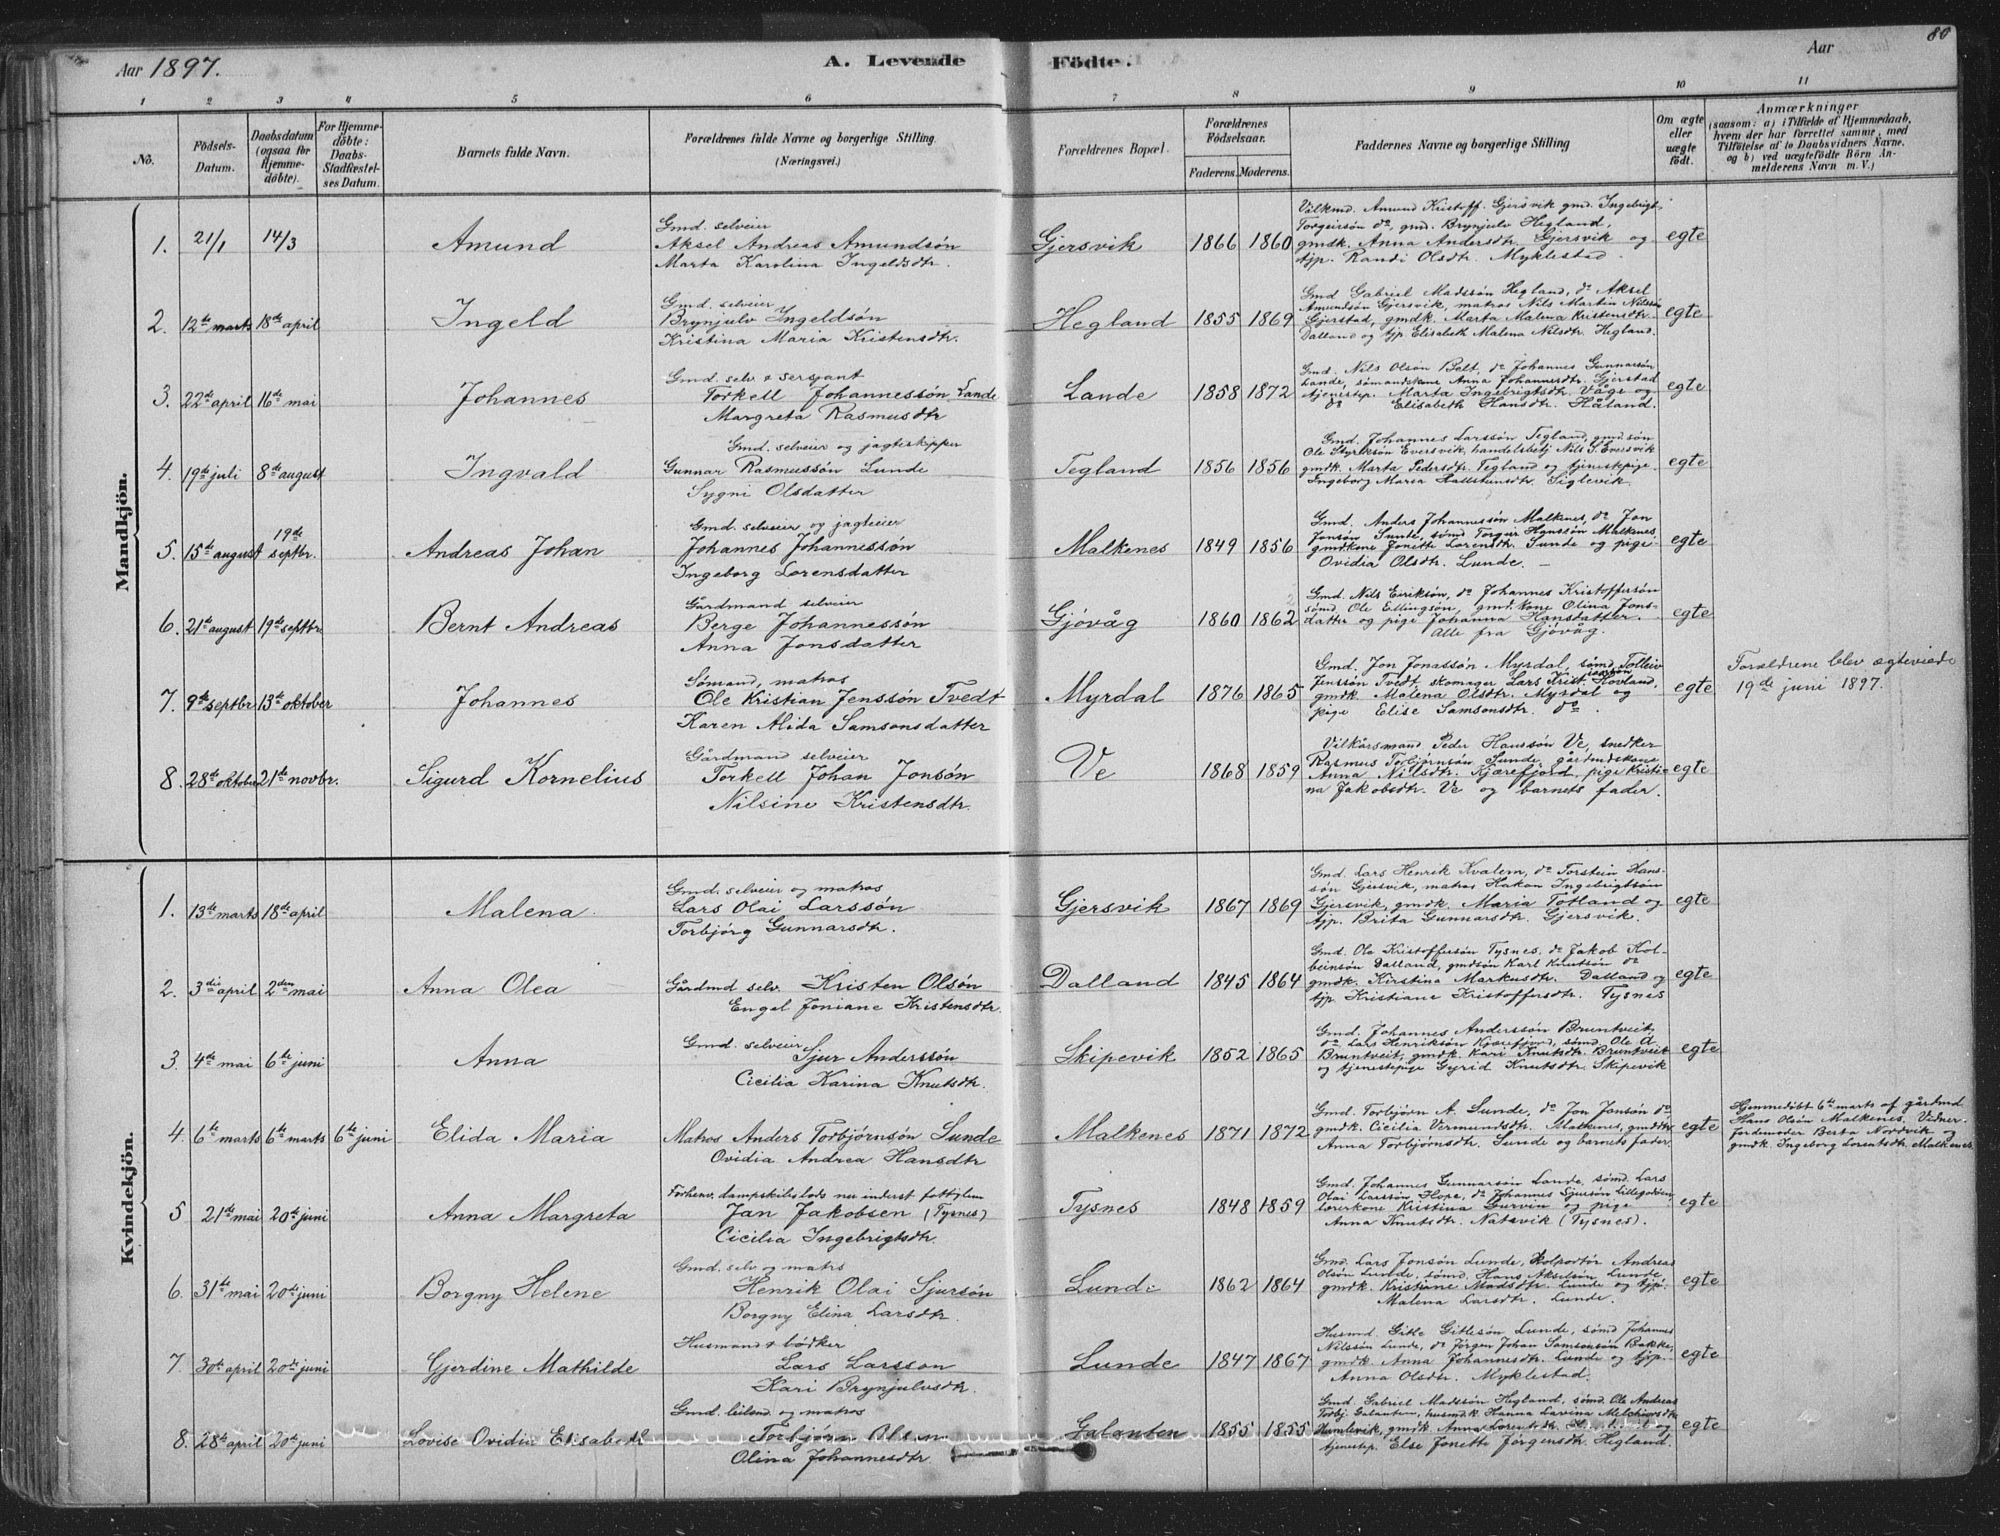 Aar 1897. A. Levende Födte. Aar 80
1 2 3 4 5 6 7 8 9 10 11
No.
Födsels-Datum.
Daabsdatum (ogsaa for Hjemme-døbte).
For Hjemme-døbte: Daabs-Stadfæstel-ses Datum.
Barnets fulde Navn.
Forældrenes fulde Navne og borgerlige Stilling.
(Næringsvei.)
Forældrenes Bopæl.
Forældrenes Födselsaar.
Faderens. Moderens.
Faddernes Navne og borgerlige Stilling
Om ægte eller uægte födt.
Anmærkninger
(saasom: a) i Tilfælde af Hjemmedaab,
hvem der har forrettet samme, med
Tilföielse af to Daabsvidners Navne.
og b) ved uægtefödte Börn An-
melderens Navn m. V.)
Mandkjön.
1. 21/1 14/3 Amund
Gmd. selveier
Aksel Andreas Amundsön
Marta Karolina Ingeldsdtr.
Gjersvik 1866 1860
Vilkmd. Amund Kristoff. Gjersvik gmd. Ingebrigt
Torgeirsön do, gmd. Brynjulv Hegland,
gmdk. Anna Andersdtr. Gjersvik og
tjp. Randi Olsdtr. Myklestad.
egte
2. 12te marts 18de april Ingeld
Gmd. selveier
Brynjulv Ingeldsön
Kristina Maria Kristensdtr.
Hegland 1855 1869
Gmd Gabriel Madssön Hegland, do Aksel
Amundsön Gjersvik, matros Nils Martin Nilssön
Gjerstad, gmdk. Marta Malena Kristensdtr.
Dalland og tjp Elisabeth Malena Nilsdtr. Hegland.
egte
3. 22de april 16de mai Johannes
Gmd. selv. & sersjant
Torkell Johannessön Lande
Margreta Rasmusdtr
Lande 1858 1872
Gmd. Nils Olsön Belt, do Johannes Gunnarsön
Lande, sömandskone Anna Johannesdtr. Gjerstad
tjenestep. Marta Ingebrigtsdtr. Våge og
do Elisabeth Hansdtr. Håland.
egte
4. 19de juli 8de august Ingvald
Gmd. selveier og jagteskipper
Gunnar Rasmussön Lunde
Sygni Olsdatter
Tegland 1856 1856
Gmd. Johannes Larssön Tegland, gmdsön
Ole Styriksön Eversvik, handelsbetj Nils S. Eversvik
gmdk. Marta Pedersdtr. Tegland og tjenestepige
Ingeborg Maria Hallstensdtr. Siglevik.
egte
5. 15de august 19de septbr. Andreas Johan
Gmd. selveier og jagteier
Johannes Johannessön
Ingeborg Lorensdatter
Malkenes 1849 1856
Gmd. Anders Johannessön Malkenes, do Jon
Jonsön Sunde, sömd Torger Hanssön Malkenes,
gmdkone Jonette Lorensdtr. Sunde og pige
Ovidia Olsdtr. Lunde. –
egte
6. 21de august 19de septbr Bernt Andreas
Gårdmand selveier
Berge Johannessön
Anna Jonsdatter
Gjövåg 1860 1862
Gmd. Nils Eiriksön, do Johannes Kristoffersön
sömd. Ole Ellingsön, gmd.kone Olina Jons-
datter og pige Johanna Hansdatter.
Alle fra Gjövåg.
egte
7. 9de septbr 13de oktober Johannes
Sömand, matros
Ole Kristian Jenssön Tvedt
Karen Alida Samsonsdatter
Myrdal 1876 1865
Gmd. Jon Jonassön Myrdal, sömd Tolleiv
Jenssön Tvedt, skomager Lars Krist. Hovland,
gmdk. Malena Olsdtr. Myrdal og
pige Elise Samsonsdtr. do.
egte
Forældrene blev egteviede
19de juni 1897.
8. 28de oktober 21de novbr. Sigurd Kornelius
Gårdmand selveier
Torkell Johan Jonsön
Nilsine Kristensdtr.
Ve 1868 1859
Vilkårsmand Peder Hanssön Ve, snedker
Rasmus Torbjörnsön Sunde, gårdmdskone
Anna Nilsdtr. Kjærefjord, pige Kristi-
na Jakobsdtr. Ve og barnets fader.
egte
Kvindekjön.
1. 13de marts 18de april Malena
Gmd. selveier og matros
Lars Olai Larssön
Torbjörg Gunnarsdtr.
Gjersvik 1867 1869
Gmd. Lars Henrik Kvalem, do Torstein Hans-
sön Gjersvik, matros Hakon Ingebrigtsön
Gjersvik, gmdk. Maria Totland og
tjp. Brita Gunnarsdtr. Gjersvik.
egte
2. 3die april 2den mai Anna Olea
Gårdmd selv. Kristen Olsön
Engel Joniane Kristensdtr.
Dalland 1845 1864
Gmd. Ole Kristoffersön Tysnes, do Jakob Kol-
beinsön Dalland, gmdsön Karl Knutsön do
gmdk. Kirstina Markusdtr. Dalland og
tjp Kristiane Kristoffersdtr. Tysnes
egte
3. 4de mai 6te juni Anna
Gmd. selveier
Sjur Anderssön
Cicilia Karina Knutsdtr.
Skipevik 1852 1865
Gmd. Johannes Anderssön Bruntveit,
do Lars Henriksön Kjærefjord, sömd. Ole A.
Bruntveit, gmdk. Kari Knutsdtr. Bruntveit
og tjenestepige Gyrid Knutsdtr. Skipevik
egte
4. 6te marts 6te marts 6te juni Elida Maria
Matros Anders Torbjörnsön Sunde
Ovidia Andrea Hansdtr
Malkenes 1871 1872
Gmd. Torbjörn A. Sunde, do Jon Jonsön do
gmdk. Cicilia Vermundsdtr. Malkenes, gmddtr
Anna Torbjörnsdtr. Sunde og barnets fader.
egte
Hjemmedöbt 6te marts af gårdmd
Hans Olsön Malkenes. Vidner.
Jordemoder Berta Nordvik og
gmdk. Ingeborg Lorentsdtr. Malkenes.
5 21de mai 20de juni Anna Margreta
Forhenv. dampskibslods nu inderst fattiglem
Jan Jakobsen (Tysnes)
Cicilia Ingebrigtsdtr.
Tysnes 1848 1859
Gmd. Johannes Gunnarsön Lande, sömd. Lars
Olai Larssön Hope, do Johannes Sjursön
Lærerkone Kristina Gurvin og pige
Anna Knutsdtr. Natavik (Tysnes).
egte
6. 31te mai 20de juni Borgny Helene
Gmd. selv og matrs
Henrik Olai Sjursön
Borgny Elina Larsdtr.
Lunde 1862 1864
Gmd. Lars Jonsön Lunde, kolportör Andreas
Olsön Lunde, sömd. Hans Akselsön Lunde
gmdk. Kristiane Madsdtr. Lunde og tjp
Malena Larsdtr. Lunde.
egte
7. 30te april 20de juni Gjerdine Mathilde
Husmand & bödker
Lars Larsson
Kari Brynjulvsdtr.
Lunde 1847 1867
Husmd. Gitle Gitlesön Lunde, sömd Johannes
Nilssön Lunde, do Jörgen Johan Samsonsön Bakke,
gmdk. Anna Johannesdtr. Lunde og tjp.
Anna Olsdtr. Myklestad.
egte
8. 28de april 20de juni Lovise Ovidia Elisabeth
Gmd. leilend. og matros
Torbjörn Olsen
Olina Johannesdtr
Galanten 1855 1855
Gmd. Gabriel Madssön Hegland, sömd. Ole Andreas
Torbj. Galanten, husmdk. Hanna Lavina Melchiorsdtr
Humlevik, gmdk. Anna
tjenestep. Else Jonette Jörgensdtr. Hegland.
egte